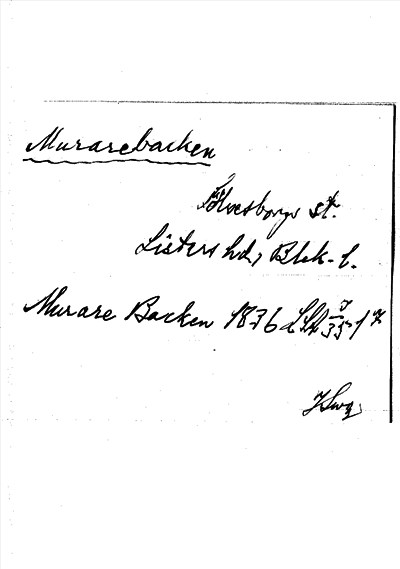 Murarebacken
Sölvesborgs st.
Listers hd, Blek. l.
Murare Backen 1836 LSA